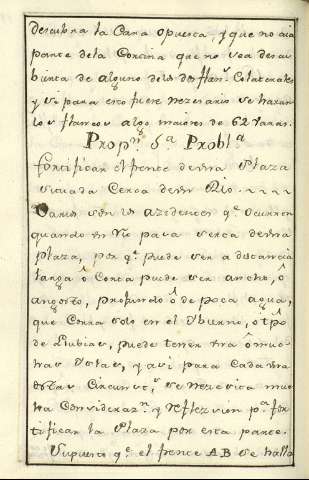 descubra la Cara Opuesta, y que no aia
parte dela Cortina que no sea descu
bierta de alguno delos dos flan.s Colaterales
y si para esto fuere nezesario se haran
los flancos algo maiores de 62 Varas.
Prop.n 6.a Probl.a
Fortificar el frente de una Plaza
situada Cerca de un Rio.
Varios son los azidentes q.e Ocurren
quando un Rio pasa serca de una
plaza, por q.e puede ser a distancia
larga ô Corta puede ser ancho, ô
angosto, profundo ô de poca agua,
que Corra solo en el Ybierno, ô tpõ
de Llubias, puede tener una ô mu
chas Yslas, y asi para cada una
destas Circunst.s se nezesita mu
cha Consideraz.n y reflezion p.a for
tificar la Plaza por esta parte.
Supuesto q.e el frente AB se halla